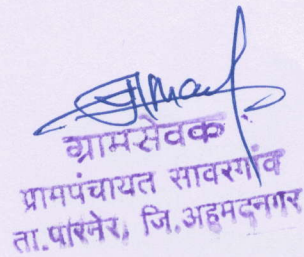 ग्रामसेवक
ग्रामपंचायत सावरगांव
ता.पारनेर, जि.अहमदनगर